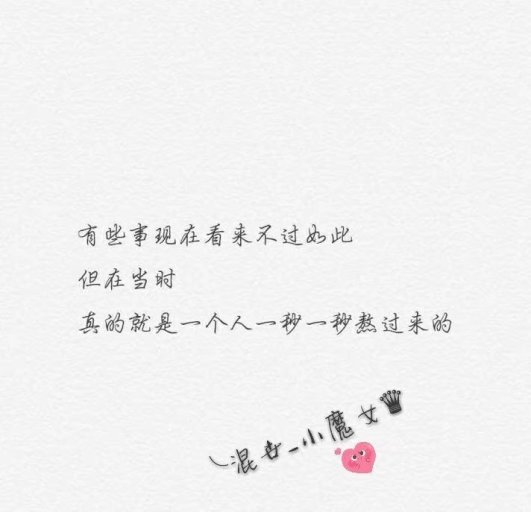 有些事现在看来不过如此
但在当时
真的就是一个人一秒一秒熬过来的
混世_小魔女